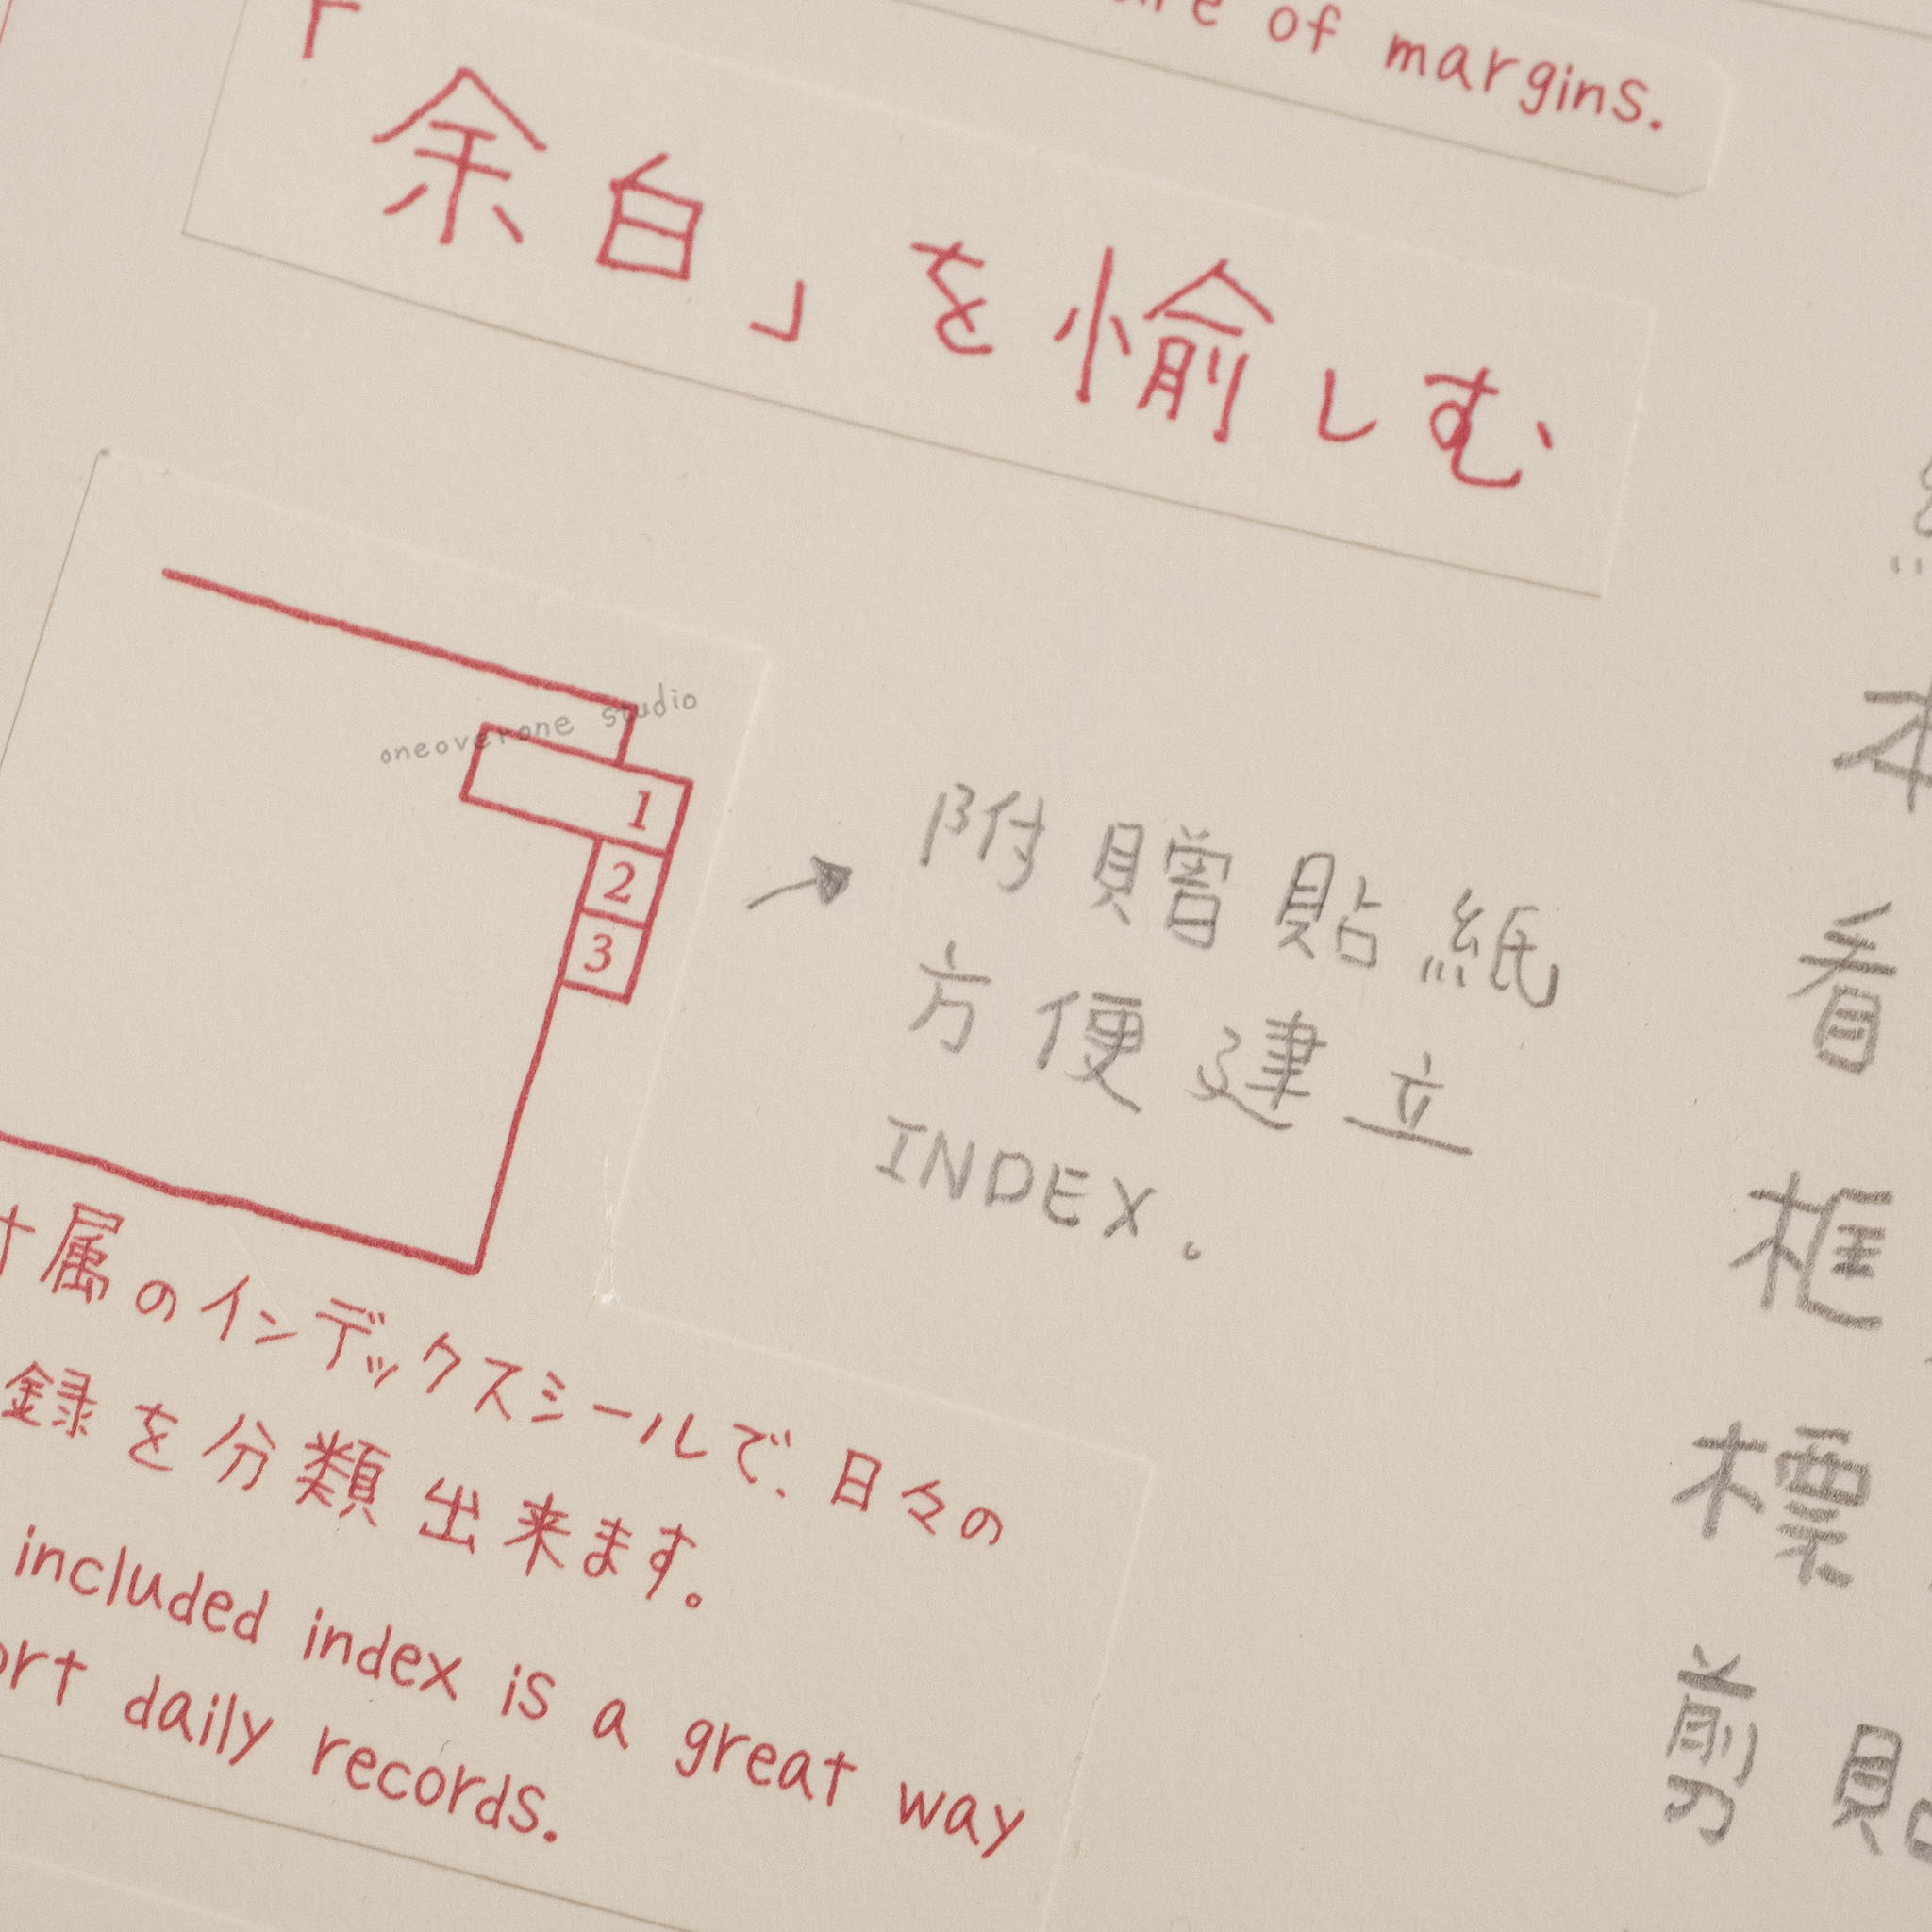 of margins.
「余白」を愉しむ
oneoverone studio
1
2
3
附贈貼紙
方便建立
INDEX。
属のインデックスシールで、日々の
録を分類出来ます。
included index is a great way
daily records.
本
看
框
標
剪貼